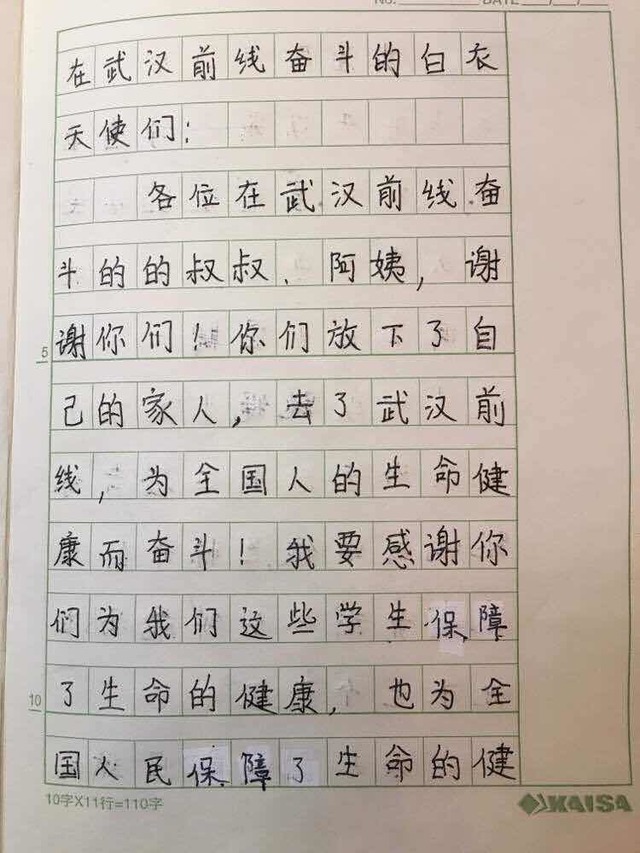 NO. DATE / /
在武汉前线奋斗的白衣
天使们：
各位在武汉前线奋
斗的的叔叔、阿姨，谢
5 谢你们！你们放下了自
己的家人，去了武汉前
线，为全国人的生命健
康而奋斗！我要感谢你
们为我们这些学生保障
10 了生命的健康，也为全
国人民保障了生命的健
10字X11行=110字 KAISA